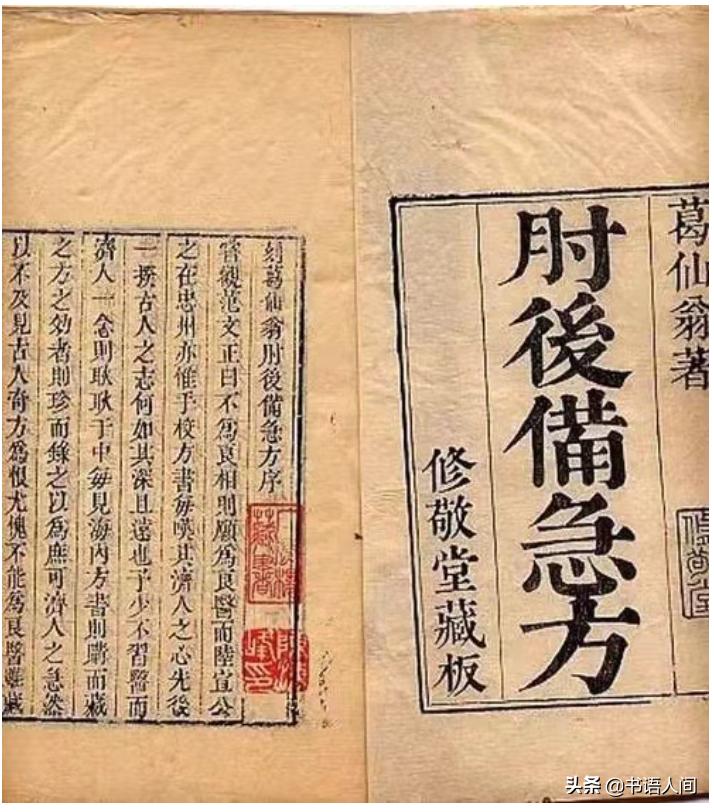 葛仙翁著
肘後備急方
修敬堂藏板
修敬堂
刻葛仙翁肘後備急方序
嘗觀范文正曰不為良相則願為良醫而陸宣公
之在忠州亦惟手校方書每嘆其濟人之心先後
一揆古人之志何如其深且遠也予少不習醫而
濟人一念則耿耿于中每見海內方書則購而藏
之方之効者則珍而錄之以為庶可濟人之急然
以不及見古人奇方為恨尤愧不能為良醫雖藏
头条 @书语人间